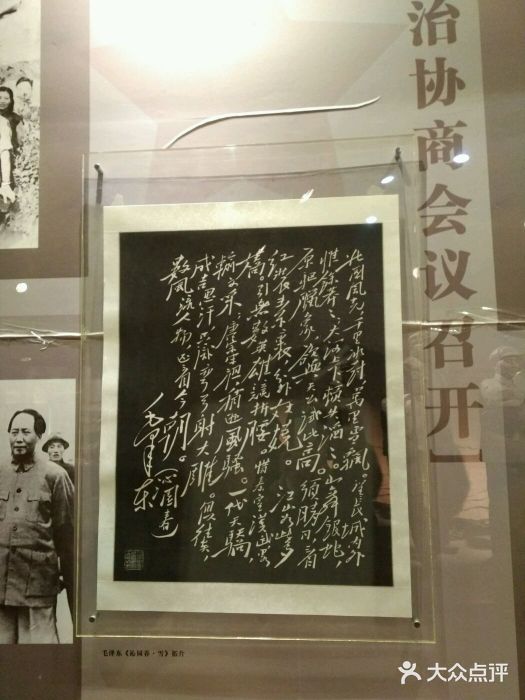 治协商会议召开
北国风光千里冰封万里雪飘。望长城内外
惟余莽々大河上下顿失滔々。山舞银蛇,
原驰腊象欲与天公试比高。须晴日看
红装素裹分外妖娆。江山如此多
娇。引无数英雄竞折腰。惜秦皇汉武略
输文采唐宗宋祖稍逊风骚。一代天骄
成吉思汗只识弯弓射大雕。俱往矣,
数风流人物还看今朝。
毛泽东 沁园春
毛泽东《沁园春·雪》拓片
大众点评